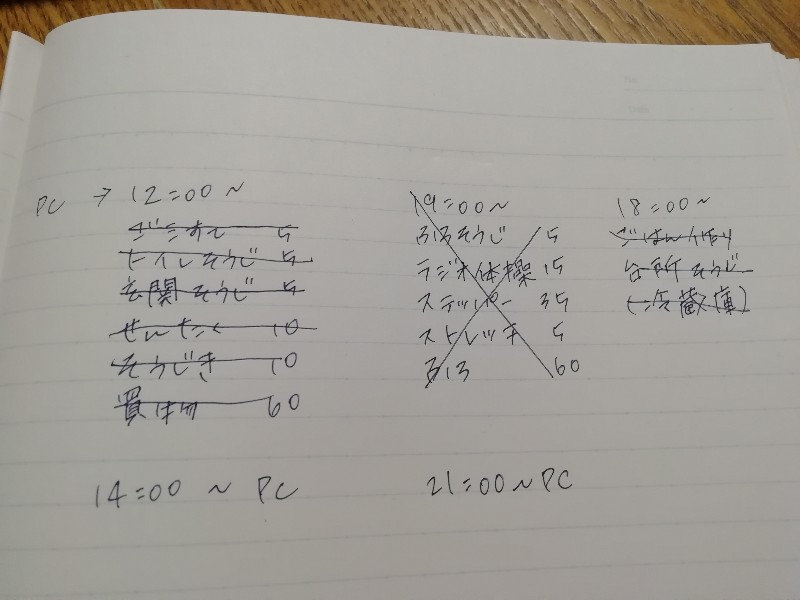 PC → 12:00~
ゴミすて 5
トイレそうじ 5
玄関そうじ 5
せんたく 10
そうじき 10
買い物 60
14:00 ~ PC
19:00~
ふろそうじ 5
ラジオ体操 15
ステッパー 35
ストレッチ 5
ふろ 60
21:00~PC
18:00~
ごはん作り
台所そうじ
(冷蔵庫)